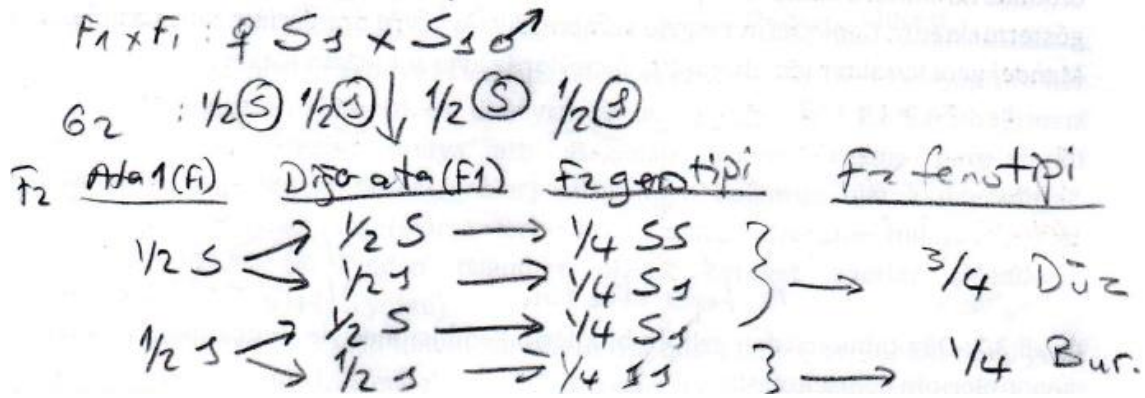 F1 x F1 : ♀ Ss x Ss ♂
G2 : 1/2 S 1/2 s ↓ 1/2 S 1/2 s
F2 Ata 1 (F1) Diğer ata (F1) F2 genotipi F2 fenotipi
1/2 S 1/2 S → 1/4 SS
1/2 s → 1/4 Ss } → 3/4 Düz
1/2 s 1/2 S → 1/4 Ss
1/2 s → 1/4 ss } → 1/4 Bur.